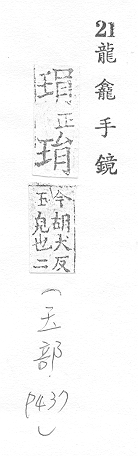 21 龍龕手鏡
琄正
今胡犬反
玉皃也二
(玉部 p437)